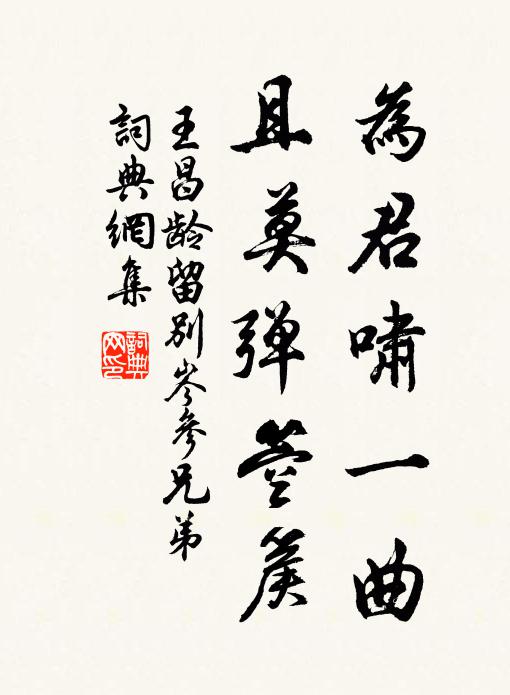 為君嘯一曲
且莫弹箜篌
王昌龄留别岑參兄弟
詞典網集
詞典網印